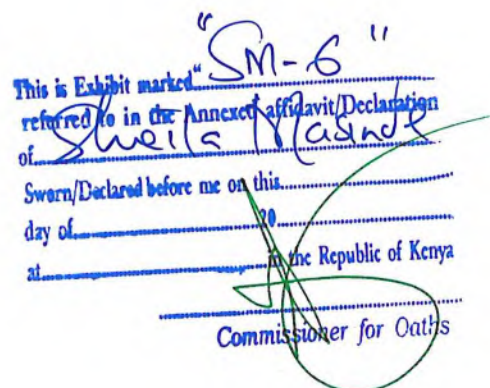 This is Exhibit marked "SM-6"
referred to in the Annexed affidavit/Declaration
of Sheila Masinde
Sworn/Declared before me on this
day of 20
at in the Republic of Kenya
Commissioner for Oaths